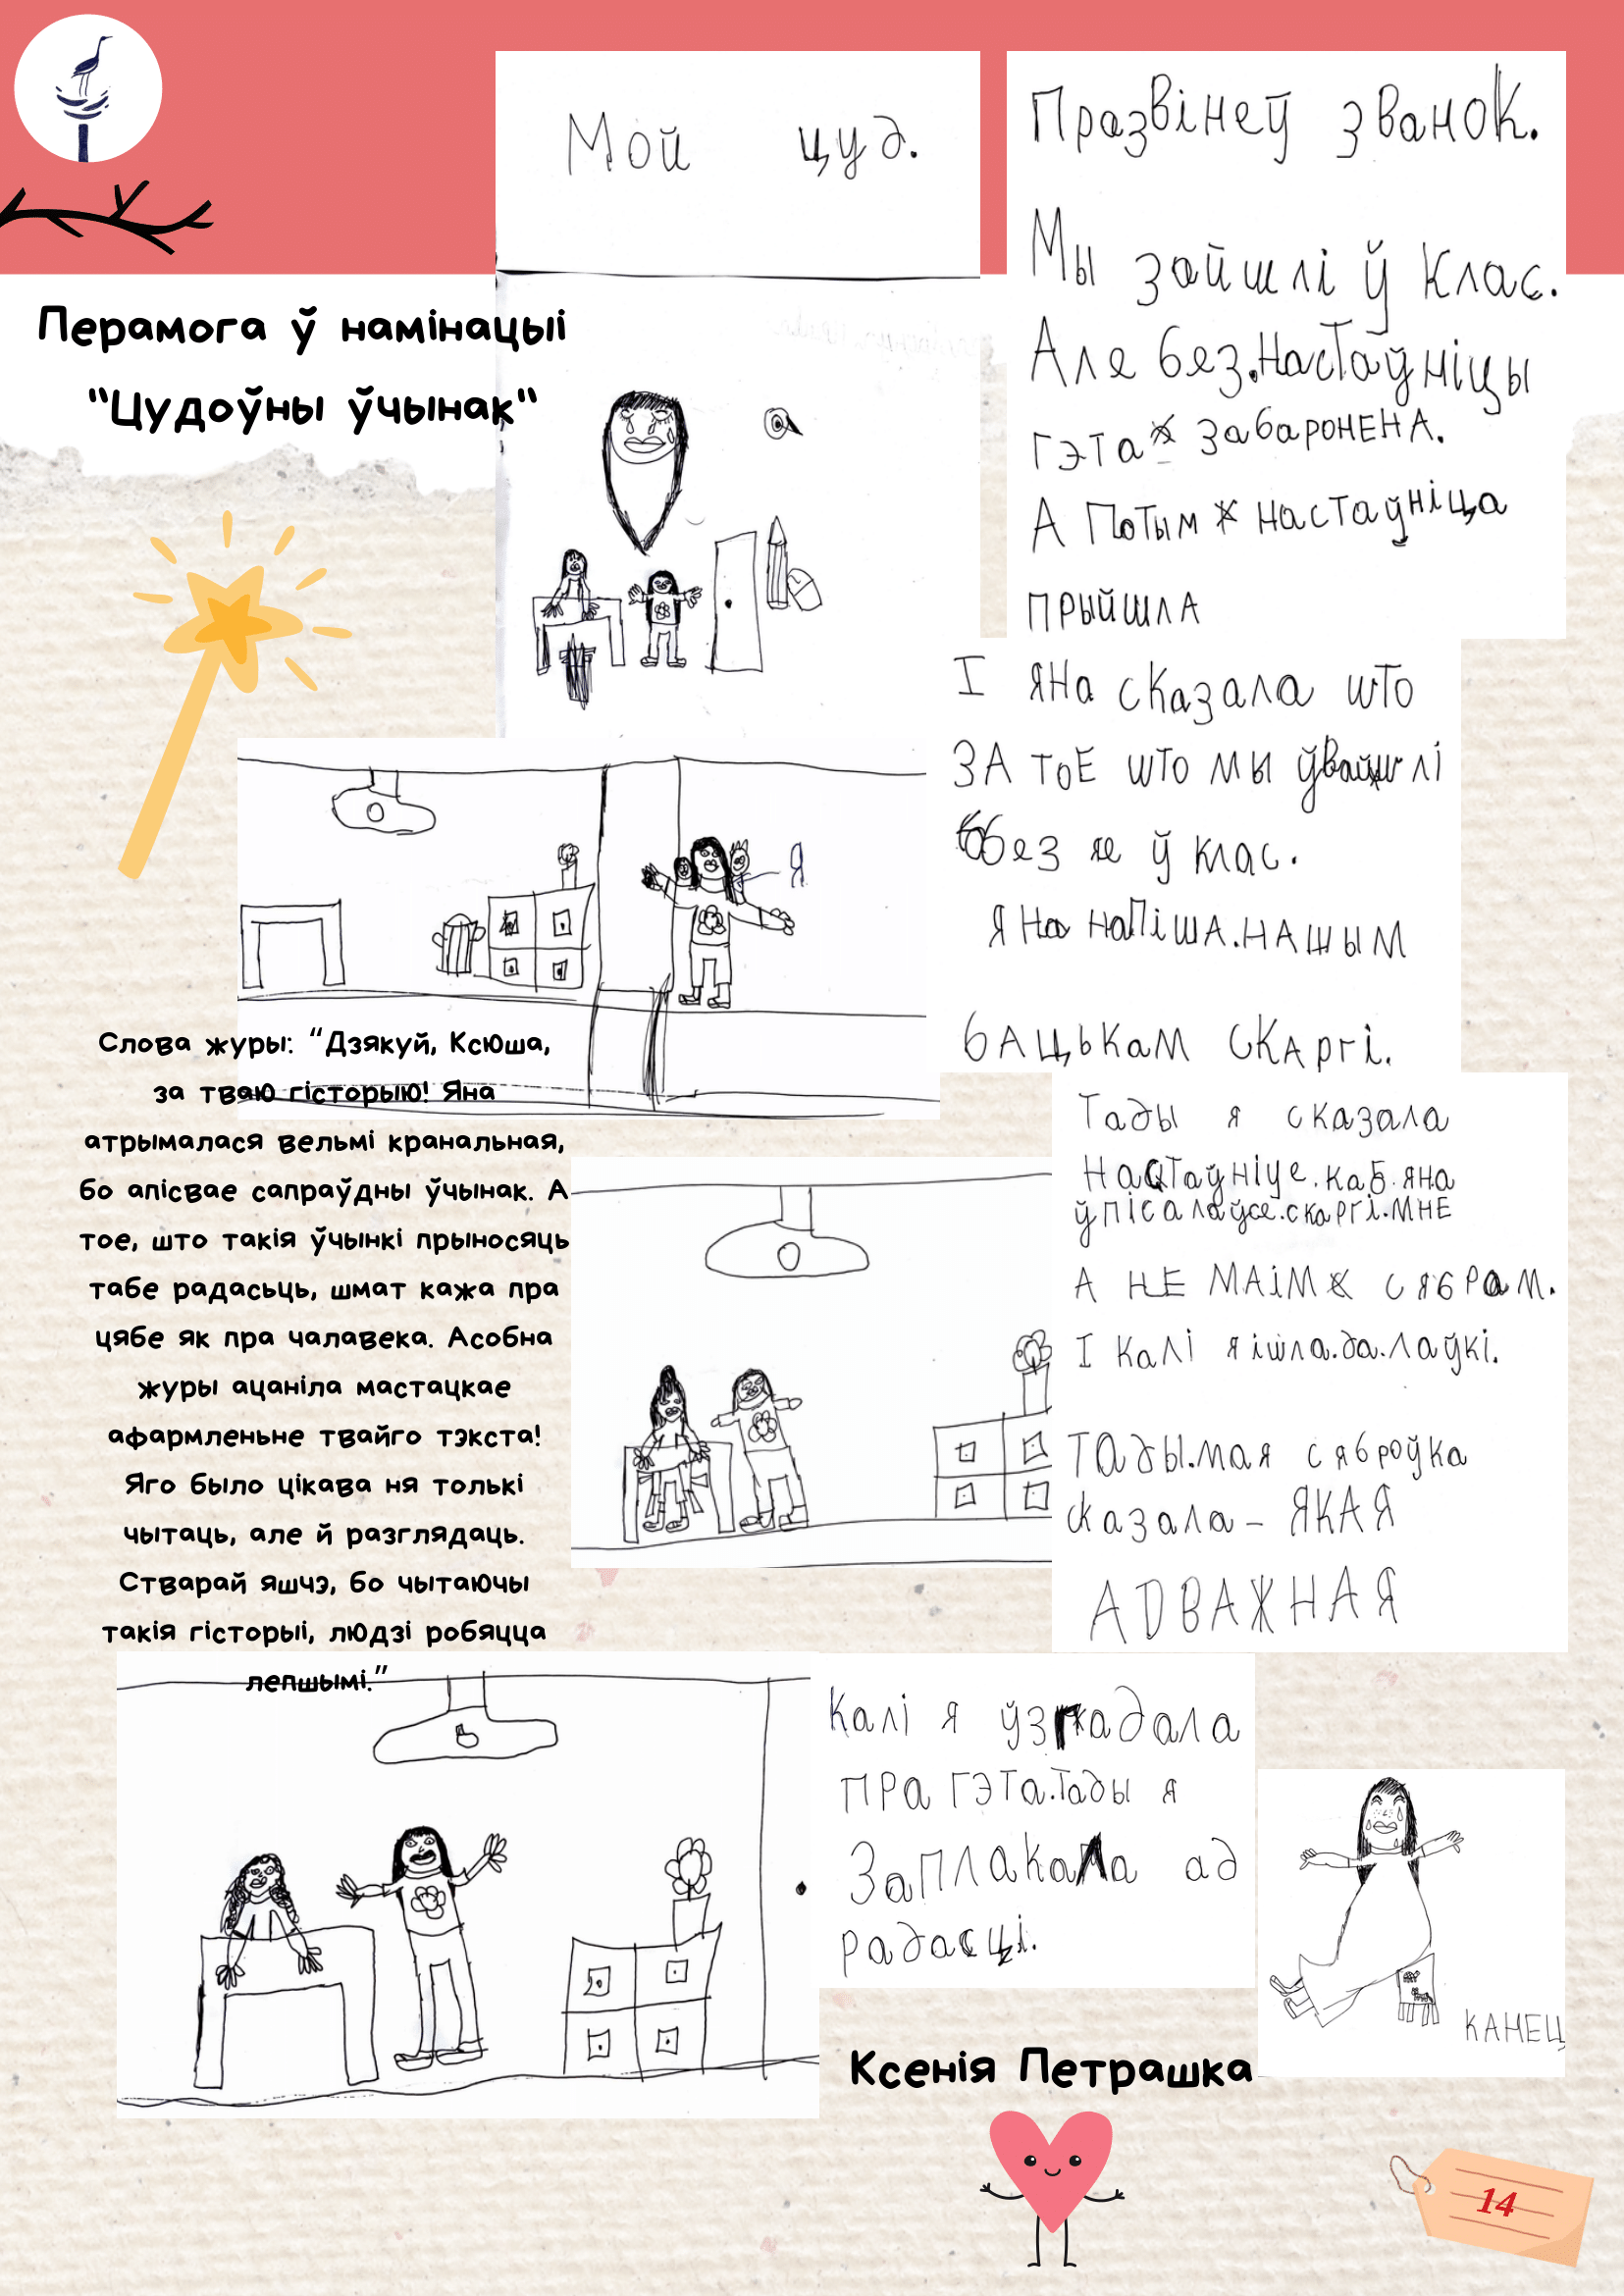 Перамога ў намінацыі
"Цудоўны ўчынак"
Мой цуд.
Празвінеў званок.
Мы зайшлі ў клас.
Але без.настаўніцы
гэта забаронена.
А потым настаўніца
прыйшла
І яна сказала што
за тое што мы ўвайшлі
без яе ў клас.
яна напіша.нашым
бацькам скаргі.
Я
Тады я сказала
настаўніце.каб.яна
ўпісала ўсе.скаргі.мне
а не маім сябрам.
І калі я ішла.да.лаўкі.
Тады.мая сяброўка
сказала – ЯКАЯ
АДВАЖНАЯ
Калі я ўзгадала
пра гэта.Тады я
Заплакала ад
радасці.
КАНЕЦ
Слова журы: “Дзякуй, Ксюша,
за тваю гісторыю! Яна
атрымалася вельмі кранальная,
бо апісвае сапраўдны ўчынак. А
тое, што такія ўчынкі прыносяць
табе радасьць, шмат кажа пра
цябе як пра чалавека. Асобна
журы ацаніла мастацкае
афармленьне твайго тэкста!
Яго было цікава ня толькі
чытаць, але й разглядаць.
Стварай яшчэ, бо чытаючы
такія гісторыі, людзі робяцца
лепшымі.”
Ксенія Петрашка
14